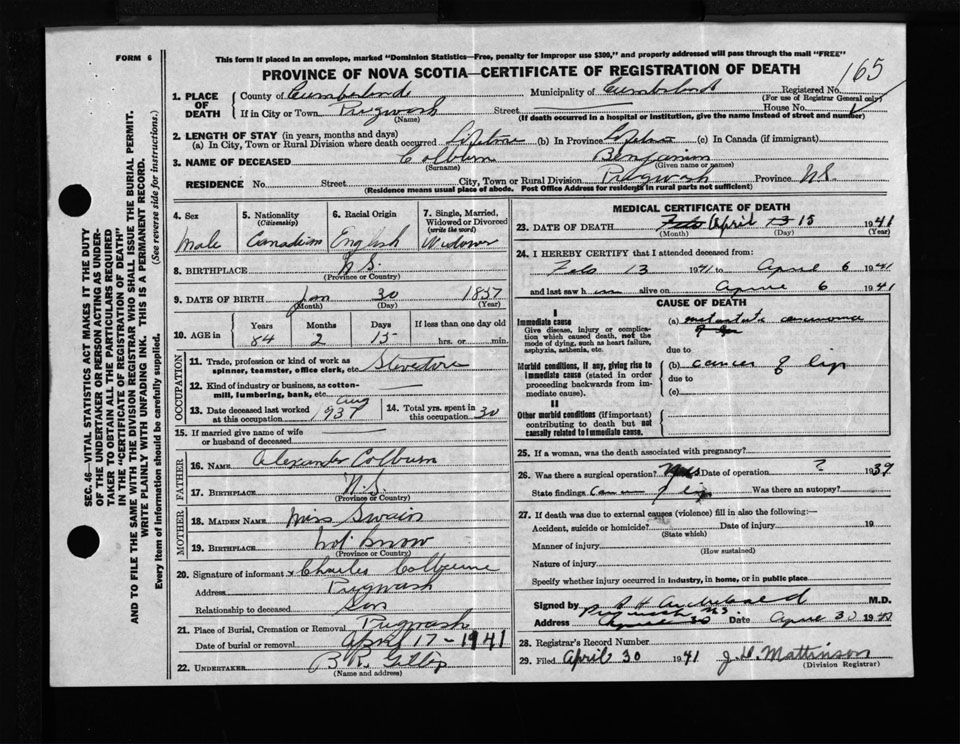 FORM 6
This form if placed in an envelope, marked "Dominion Statistics—Free, penalty for improper use $300," and properly addressed will pass through the mail "FREE"
PROVINCE OF NOVA SCOTIA—CERTIFICATE OF REGISTRATION OF DEATH
165
1. PLACE OF DEATH
County of Cumberland Municipality of Cumberland Registered No.
(For use of Registrar General only)
If in City or Town Pugwash Street House No.
(Name) (If death occurred in a hospital or institution, give the name instead of street and number)
2. LENGTH OF STAY (in years, months and days)
(a) In City, Town or Rural Division where death occurred Lifetime (b) In Province Lifetime (c) In Canada (if immigrant)
3. NAME OF DECEASED Colburn Benjamin
(Surname) (Given name or names)
RESIDENCE No. Street City, Town or Rural Division Pugwash Province N.S.
(Residence means usual place of abode. Post Office Address for residents in rural parts not sufficient)
4. Sex
Male
5. Nationality
(Citizenship)
Canadian
6. Racial Origin
English
7. Single, Married, Widowed or Divorced
(write the word)
Widower
8. BIRTHPLACE N.S.
(Province or Country)
9. DATE OF BIRTH Jan 30 1857
(Month) (Day) (Year)
10. AGE in
Years Months Days If less than one day old
84 2 15 hrs. or min.
OCCUPATION
11. Trade, profession or kind of work as spinner, teamster, office clerk, etc. Stevedore
12. Kind of industry or business, as cotton-mill, lumbering, bank, etc.
13. Date deceased last worked at this occupation Aug 1937
14. Total yrs. spent in this occupation 30
15. If married give name of wife or husband of deceased
FATHER
16. NAME Alexander Colburn
17. BIRTHPLACE N.S.
(Province or Country)
MOTHER
18. MAIDEN NAME Miss Swain
19. BIRTHPLACE not know
(Province or Country)
20. Signature of informant x Charles Colburne
Address Pugwash
Relationship to deceased Son
21. Place of Burial, Cremation or Removal Pugwash
Date of burial or removal April 17-1941
22. UNDERTAKER B.R.
(Name and address)
MEDICAL CERTIFICATE OF DEATH
23. DATE OF DEATH Feb April 13 15 1941
(Month) (Day) (Year)
24. I HEREBY CERTIFY that I attended deceased from:
Feb 13 1941 to April 6 1941
and last saw him alive on April 6 1941
CAUSE OF DEATH
I
Immediate cause
Give disease, injury or complication which caused death, not the mode of dying, such as heart failure, asphyxia, asthenia, etc.
(a) metastatic carcinoma
due to
Morbid conditions, if any, giving rise to immediate cause (stated in order proceeding backwards from immediate cause).
(b) cancer of lip
due to
(c)
II
Other morbid conditions (if important) contributing to death but not causally related to immediate cause.
25. If a woman, was the death associated with pregnancy?
26. Was there a surgical operation? Yes Date of operation ? 1939
State findings Cancer of lip Was there an autopsy?
27. If death was due to external causes (violence) fill in also the following:—
Accident, suicide or homicide? Date of injury 19
(State which)
Manner of injury
(How sustained)
Nature of injury
Specify whether injury occurred in industry, in home, or in public place
Signed by Archibald M.D.
Address Pugwash N.S. Date April 30 19
28. Registrar's Record Number
29. Filed April 30 1941 J. D. Mattinson
(Division Registrar)
SEC. 46—VITAL STATISTICS ACT MAKES IT THE DUTY
OF THE UNDERTAKER OR PERSON ACTING AS UNDER-
TAKER TO OBTAIN ALL THE PARTICULARS REQUIRED
IN THE "CERTIFICATE OF REGISTRATION OF DEATH"
AND TO FILE THE SAME WITH THE DIVISION REGISTRAR WHO SHALL ISSUE THE BURIAL PERMIT.
WRITE PLAINLY WITH UNFADING INK. THIS IS A PERMANENT RECORD.
Every item of information should be carefully supplied. (See reverse side for instructions.)